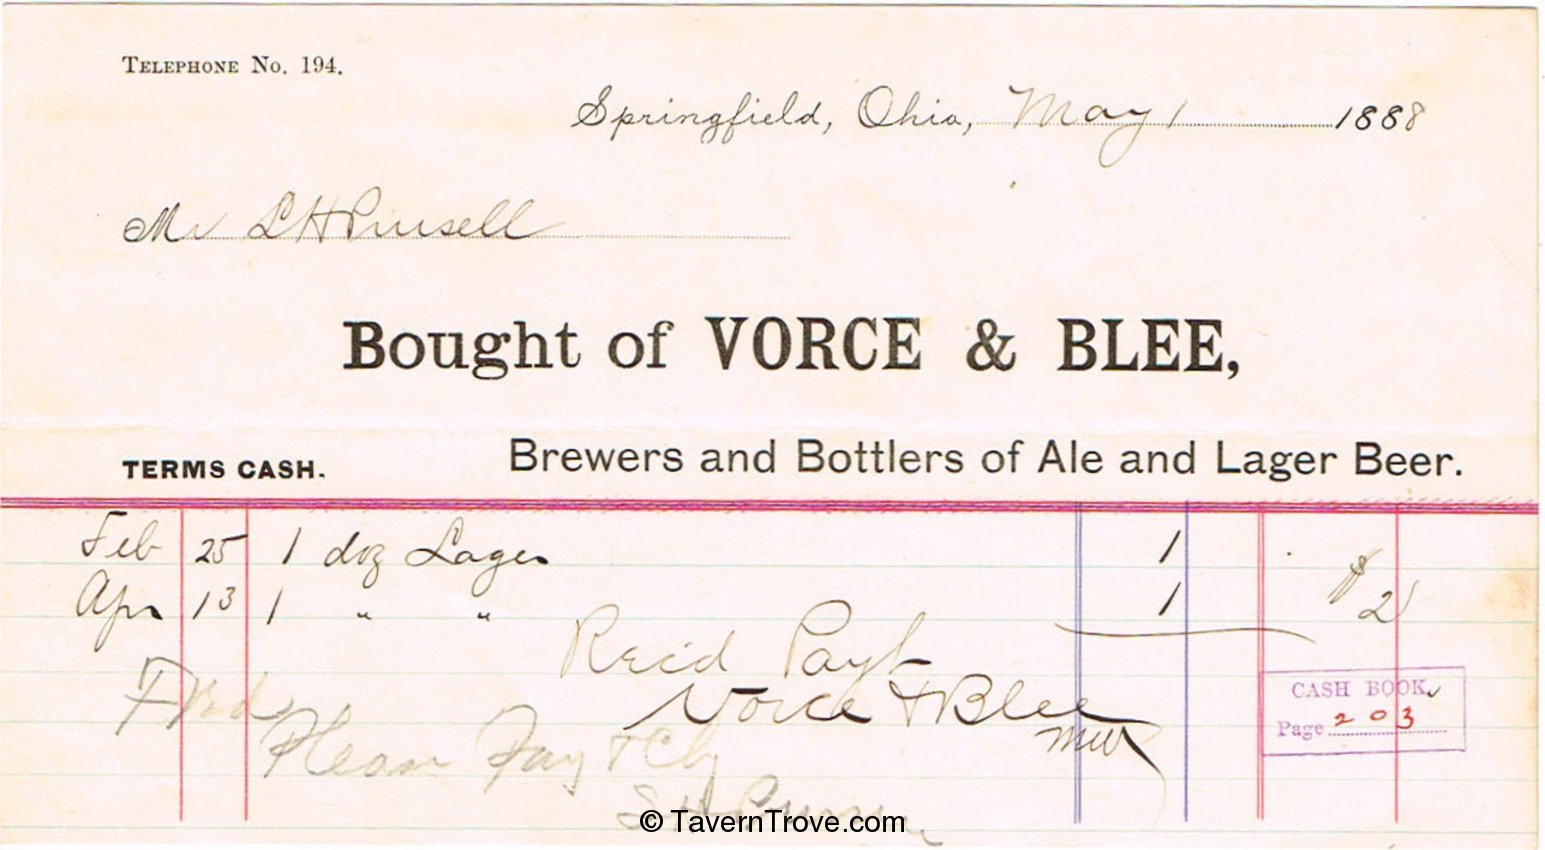 TELEPHONE NO. 194.
Springfield, Ohio, May 1 1888
Mr L H Pursell
Bought of VORCE & BLEE,
TERMS CASH. Brewers and Bottlers of Ale and Lager Beer.
Feb 25 1 doz Lager 1
Apr 13 1 " " 1 $2
Rec'd Payt
Vorce & Blee
CASH BOOK
Page 203
Please Pay & Chg
© TavernTrove.com